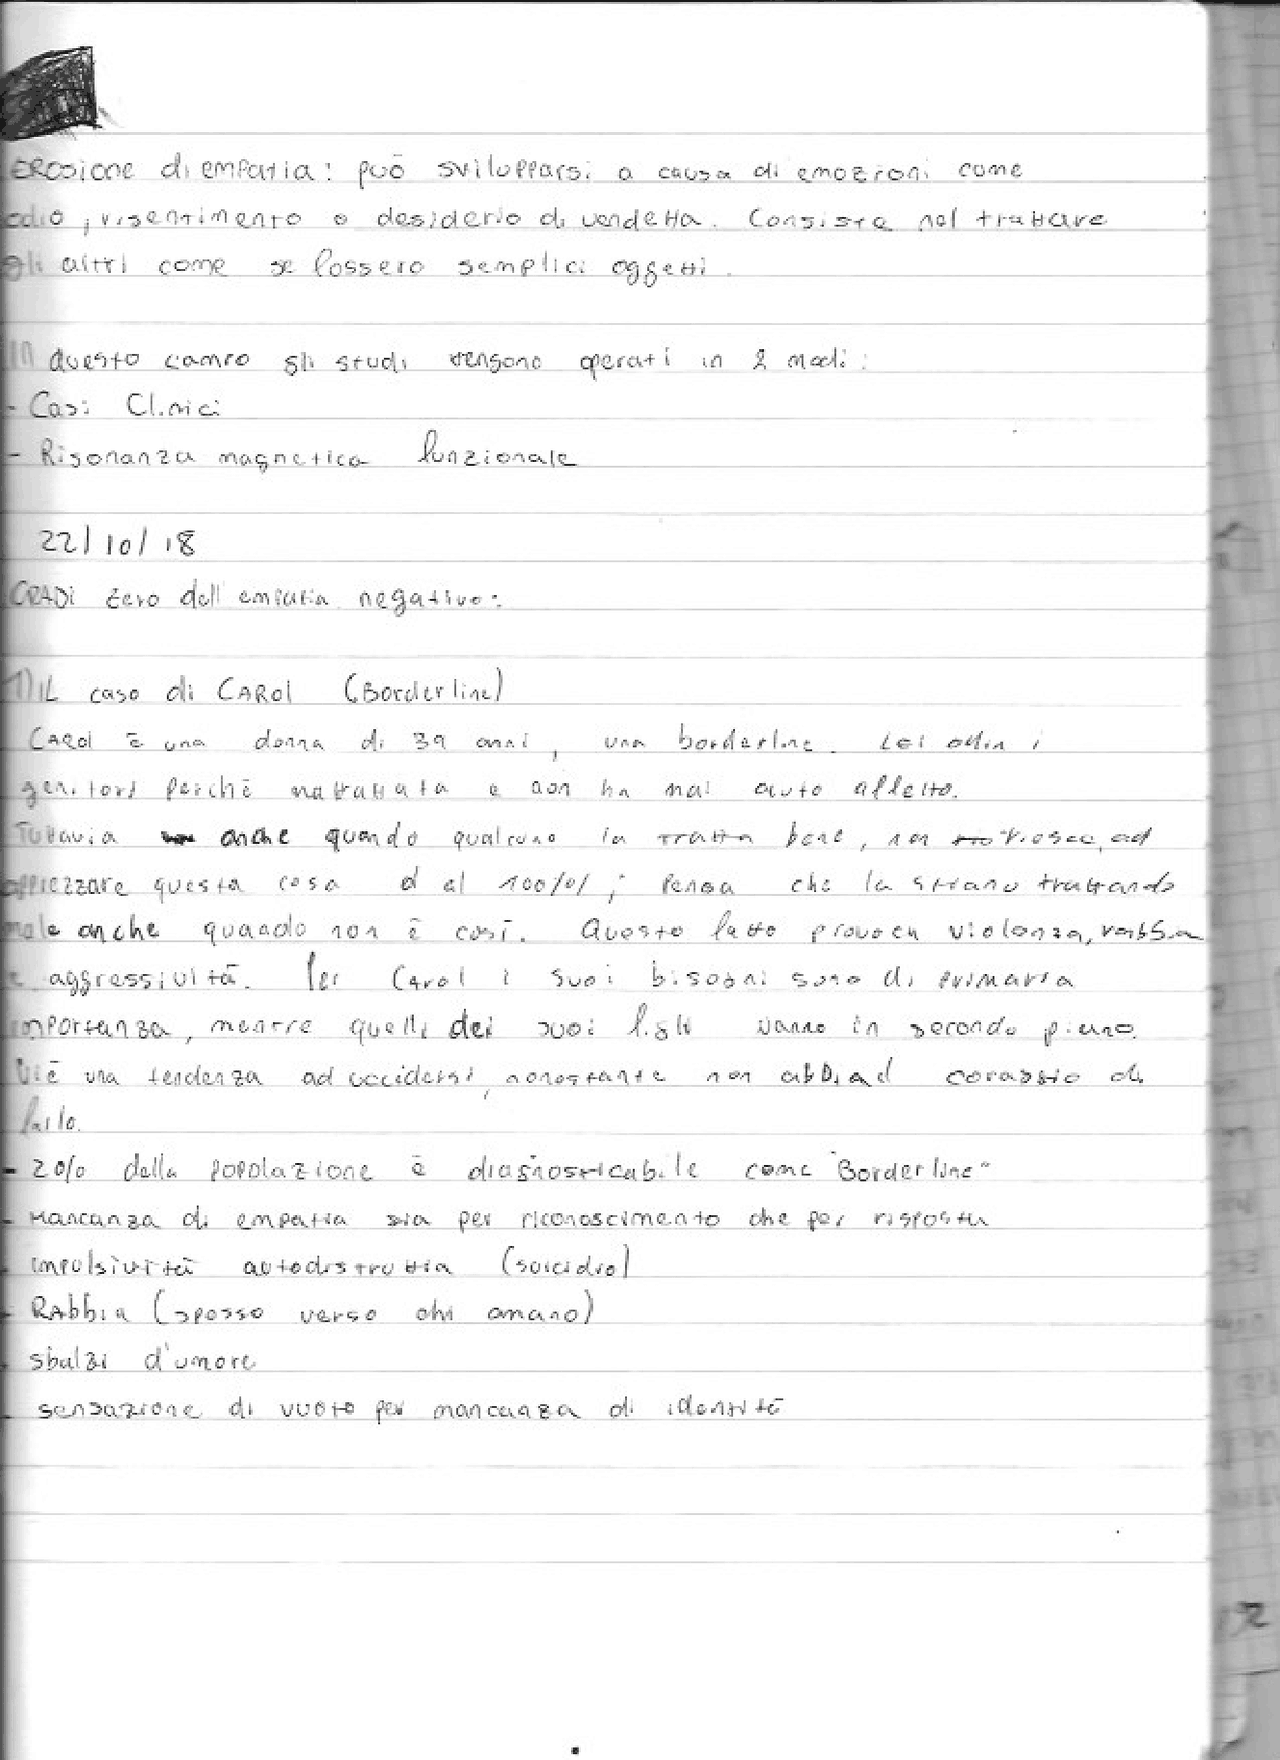 EROSIONE di empatia: può svilupparsi a causa di emozioni come
odio, risentimento o desiderio di vendetta. Consiste nel trattare
gli altri come se fossero semplici oggetti.
IN questo campo gli studi vengono operati in 2 modi:
- Casi Clinici
- Risonanza magnetica funzionale
22/10/18
GRADI zero dell'empatia negativo:
1) IL caso di CAROL (Borderline)
CAROL è una donna di 39 anni, una borderline. Lei odia i
genitori perché maltrattata e non ha mai avuto affetto.
Tuttavia anche quando qualcuno la tratta bene, non riesce ad
apprezzare questa cosa al 100%; pensa che la stiano trattando
male anche quando non è così. Questo fatto provoca violenza, rabbia
e aggressività. Per Carol i suoi bisogni sono di primaria
importanza, mentre quelli dei suoi figli vanno in secondo piano.
Vi è una tendenza ad uccidersi, nonostante non abbia il coraggio di
farlo.
- 2% della popolazione è diagnosticabile come "Borderline"
- Mancanza di empatia sia per riconoscimento che per risposta
- impulsività autodistruttiva (suicidio)
- RAbbia (spesso verso chi amano)
- sbalzi d'umore
- sensazione di vuoto per mancanza di identità